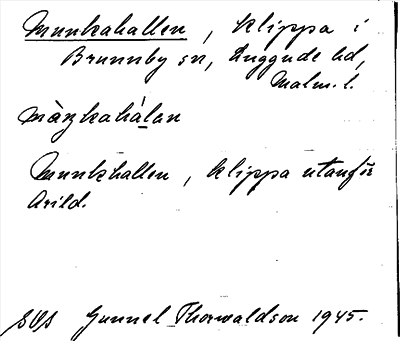 Munkahallen, klippa i
Brunnby sn, Luggude hd,
Malm. l.
Munkhallen, klippa utanför
Arild.
Gunnel Thorwaldson 1945.